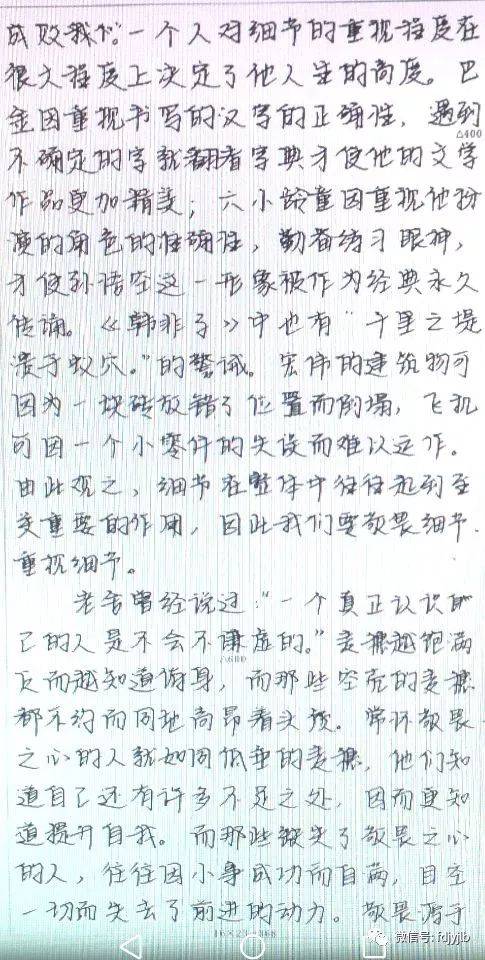 成败我们。"一个人对细节的重视程度在
很大程度上决定了他人生的高度。巴
金因重视书写的汉字的正确性,遇到
△400
不确定的字就翻看字典才使他的文学
作品更加精美;六小龄童因重视他扮
演的角色的准确性,勤奋练习眼神,
才使孙悟空这一形象被作为经典永久
传诵。《韩非子》中也有"千里之堤
溃于蚁穴。"的警诫。宏伟的建筑物可
因为一块砖放错了位置而倒塌,飞机
可因一个小零件的失误而难以运作。
由此观之,细节在整体中往往起到至
关重要的作用,因此我们要敬畏细节、
重视细节。
老舍曾经说过:"一个真正认识自
己的人是不会不谦虚的。"麦穗越饱满
△600
反而越知道俯身,而那些空壳的麦穗
都不约而同地高昂着头颅。常怀敬畏
之心的人就如同低垂的麦穗,他们知
道自己还有许多不足之处,因而更知
道提升自我。而那些缺失了敬畏之心
的人,往往因小事成功而自满,目空
一切而失去了前进的动力。敬畏源于
16×23=368
微信号: fdjyjlb